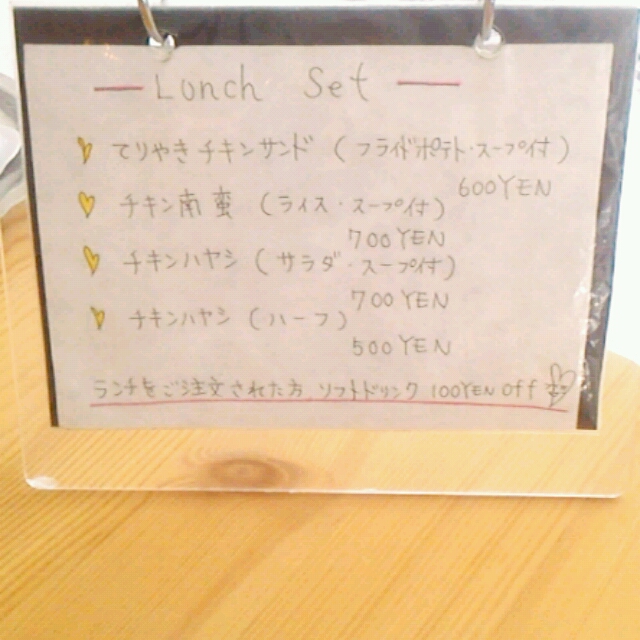 Lunch Set
てりやきチキンサンド(フライドポテト・スープ付)
600YEN
チキン南蛮(ライス・スープ付)
700YEN
チキンハヤシ(サラダ・スープ付)
700YEN
チキンハヤシ(ハーフ)
500YEN
ランチをご注文された方 ソフトドリンク 100YEN Off